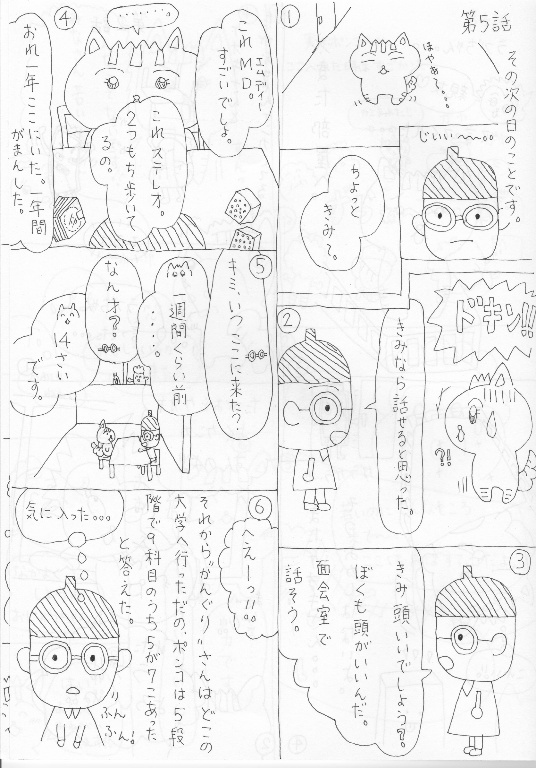 第5話
その次の日のことです。
①
ほやぁ〜...
じいい〜〜。
ちょっと
きみ〜。
ドキン!!
②
きみなら話せると思った。
?!
③
きみ頭いいでしょう?。
ぼくも頭がいいんだ。
面会室で
話そう。
④
.......
エムディー
これMD。
すごいでしょ。
これステレオ。
2つもち歩いて
るの。
おれ一年ここにいた。一年間
がまんした。
⑤
キミ、いつここに来た?
一週間くらい前
.....。
なん才?
14さい
です。
⑥
へえーっ!!。
それから"がんぐり"さんはどこの
大学へ行っただの、ポンコは5段
階で9科目のうち5が7こあった
と答えた。
気に入った...
りん
ぷんぷん!